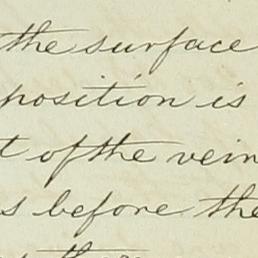 the surface
position is
t of the vein
s before the